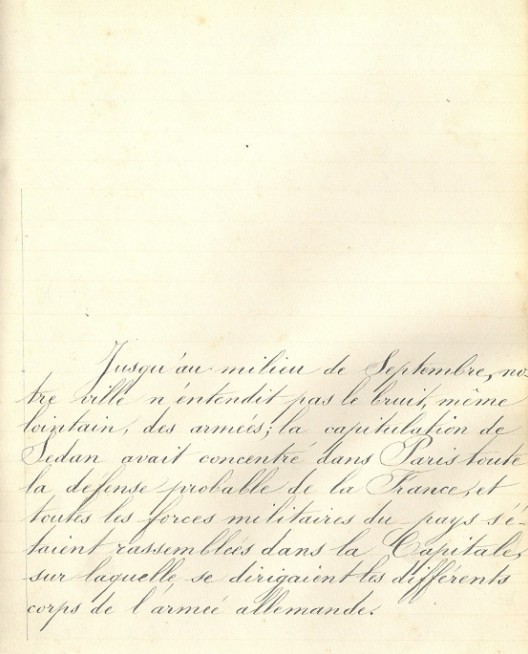 Jusqu'au milieu de Septembre, no-
tre ville n'entendit pas le bruit, même
lointain, des armées; la capitulation de
Sedan avait concentré dans Paris toute
la défense probable de la France, et
toutes les forces militaires du pays s'é-
taient rassemblées dans la Capitale,
sur laquelle se dirigaient les différents
corps de l'armée allemande.